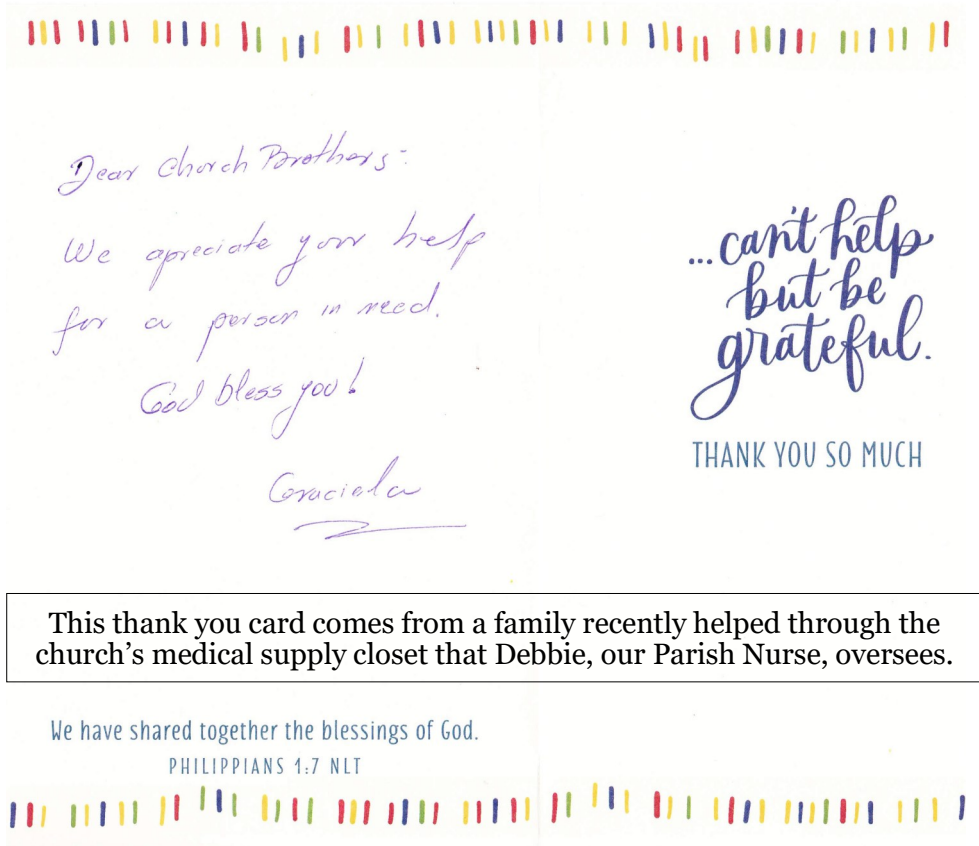 Dear Church Brothers-
We apreciate your help
for a person in need.
God bless you!
Graciela
...can't help
but be
grateful.
THANK YOU SO MUCH
This thank you card comes from a family recently helped through the
church's medical supply closet that Debbie, our Parish Nurse, oversees.
We have shared together the blessings of God.
PHILIPPIANS 1:7 NLT